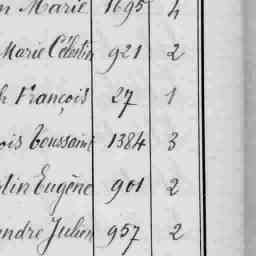 n Marie 1695 4
Marie Célestin 921 2
h François 27 1
ois Toussaint 1384 3
stin Eugène 901 2
andre Julien 957 2